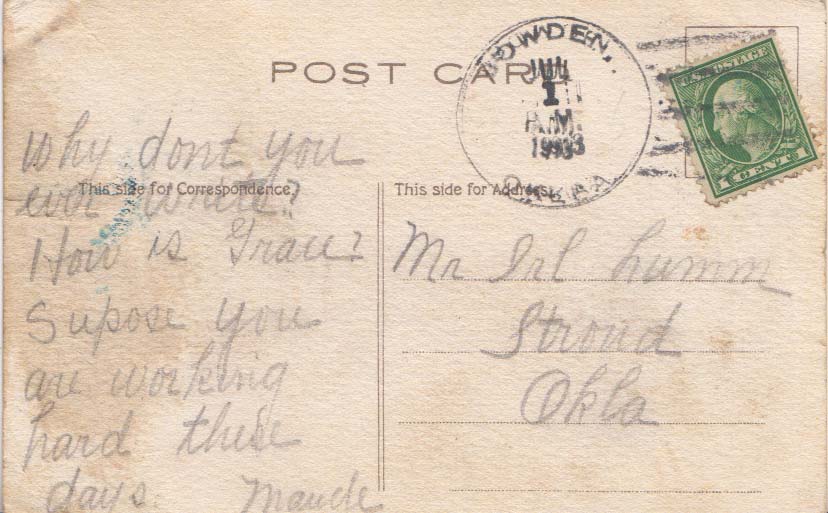 POST CARD
BOWDEN,
JUL
1
A.M.
1913
OKLA
U.S. POSTAGE
1 CENT 1
This side for Correspondence.
This side for Address.
Why dont you
ever write?
How is Grace?
Supose you
are working
hard these
days. Maude
Mr Irl Lumm
Stroud
Okla